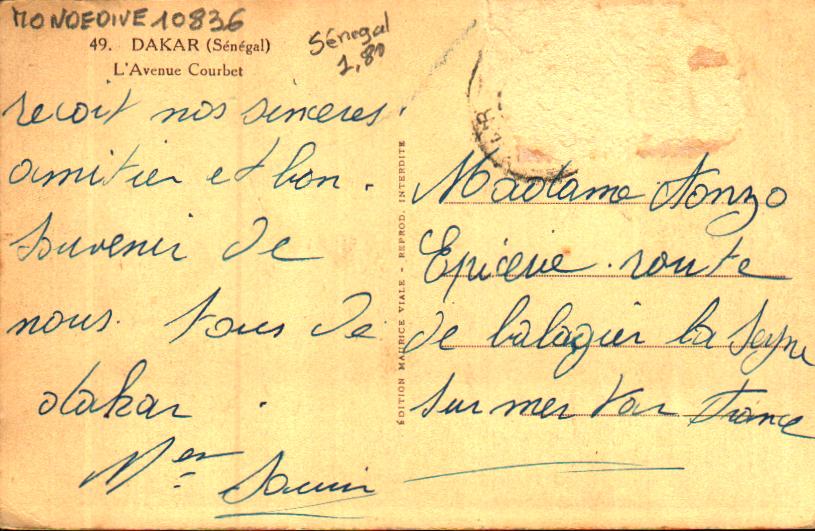 MONDEDIVE10836
49. DAKAR (Sénégal)
L'Avenue Courbet
Sénegal
1,80
recoit nos sinceres
amitier et bon.
Souvenir de
nous. tous de
dakar.
Madame
Epicerie. route
de balagier la Seyne
Sur mer Var France
ÉDITION MAURICE VIALE - REPROD. INTERDITE